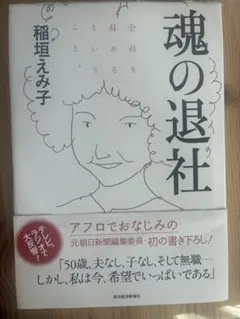 魂の退社
会社を
辞める
という
こと。
稲垣えみ子
テレビ、
ラジオで
大反響!
アフロでおなじみの
元朝日新聞編集委員・初の書き下ろし!
「50歳、夫なし、子なし、そして無職…
しかし、私は今、希望でいっぱいである」
東洋経済新報社